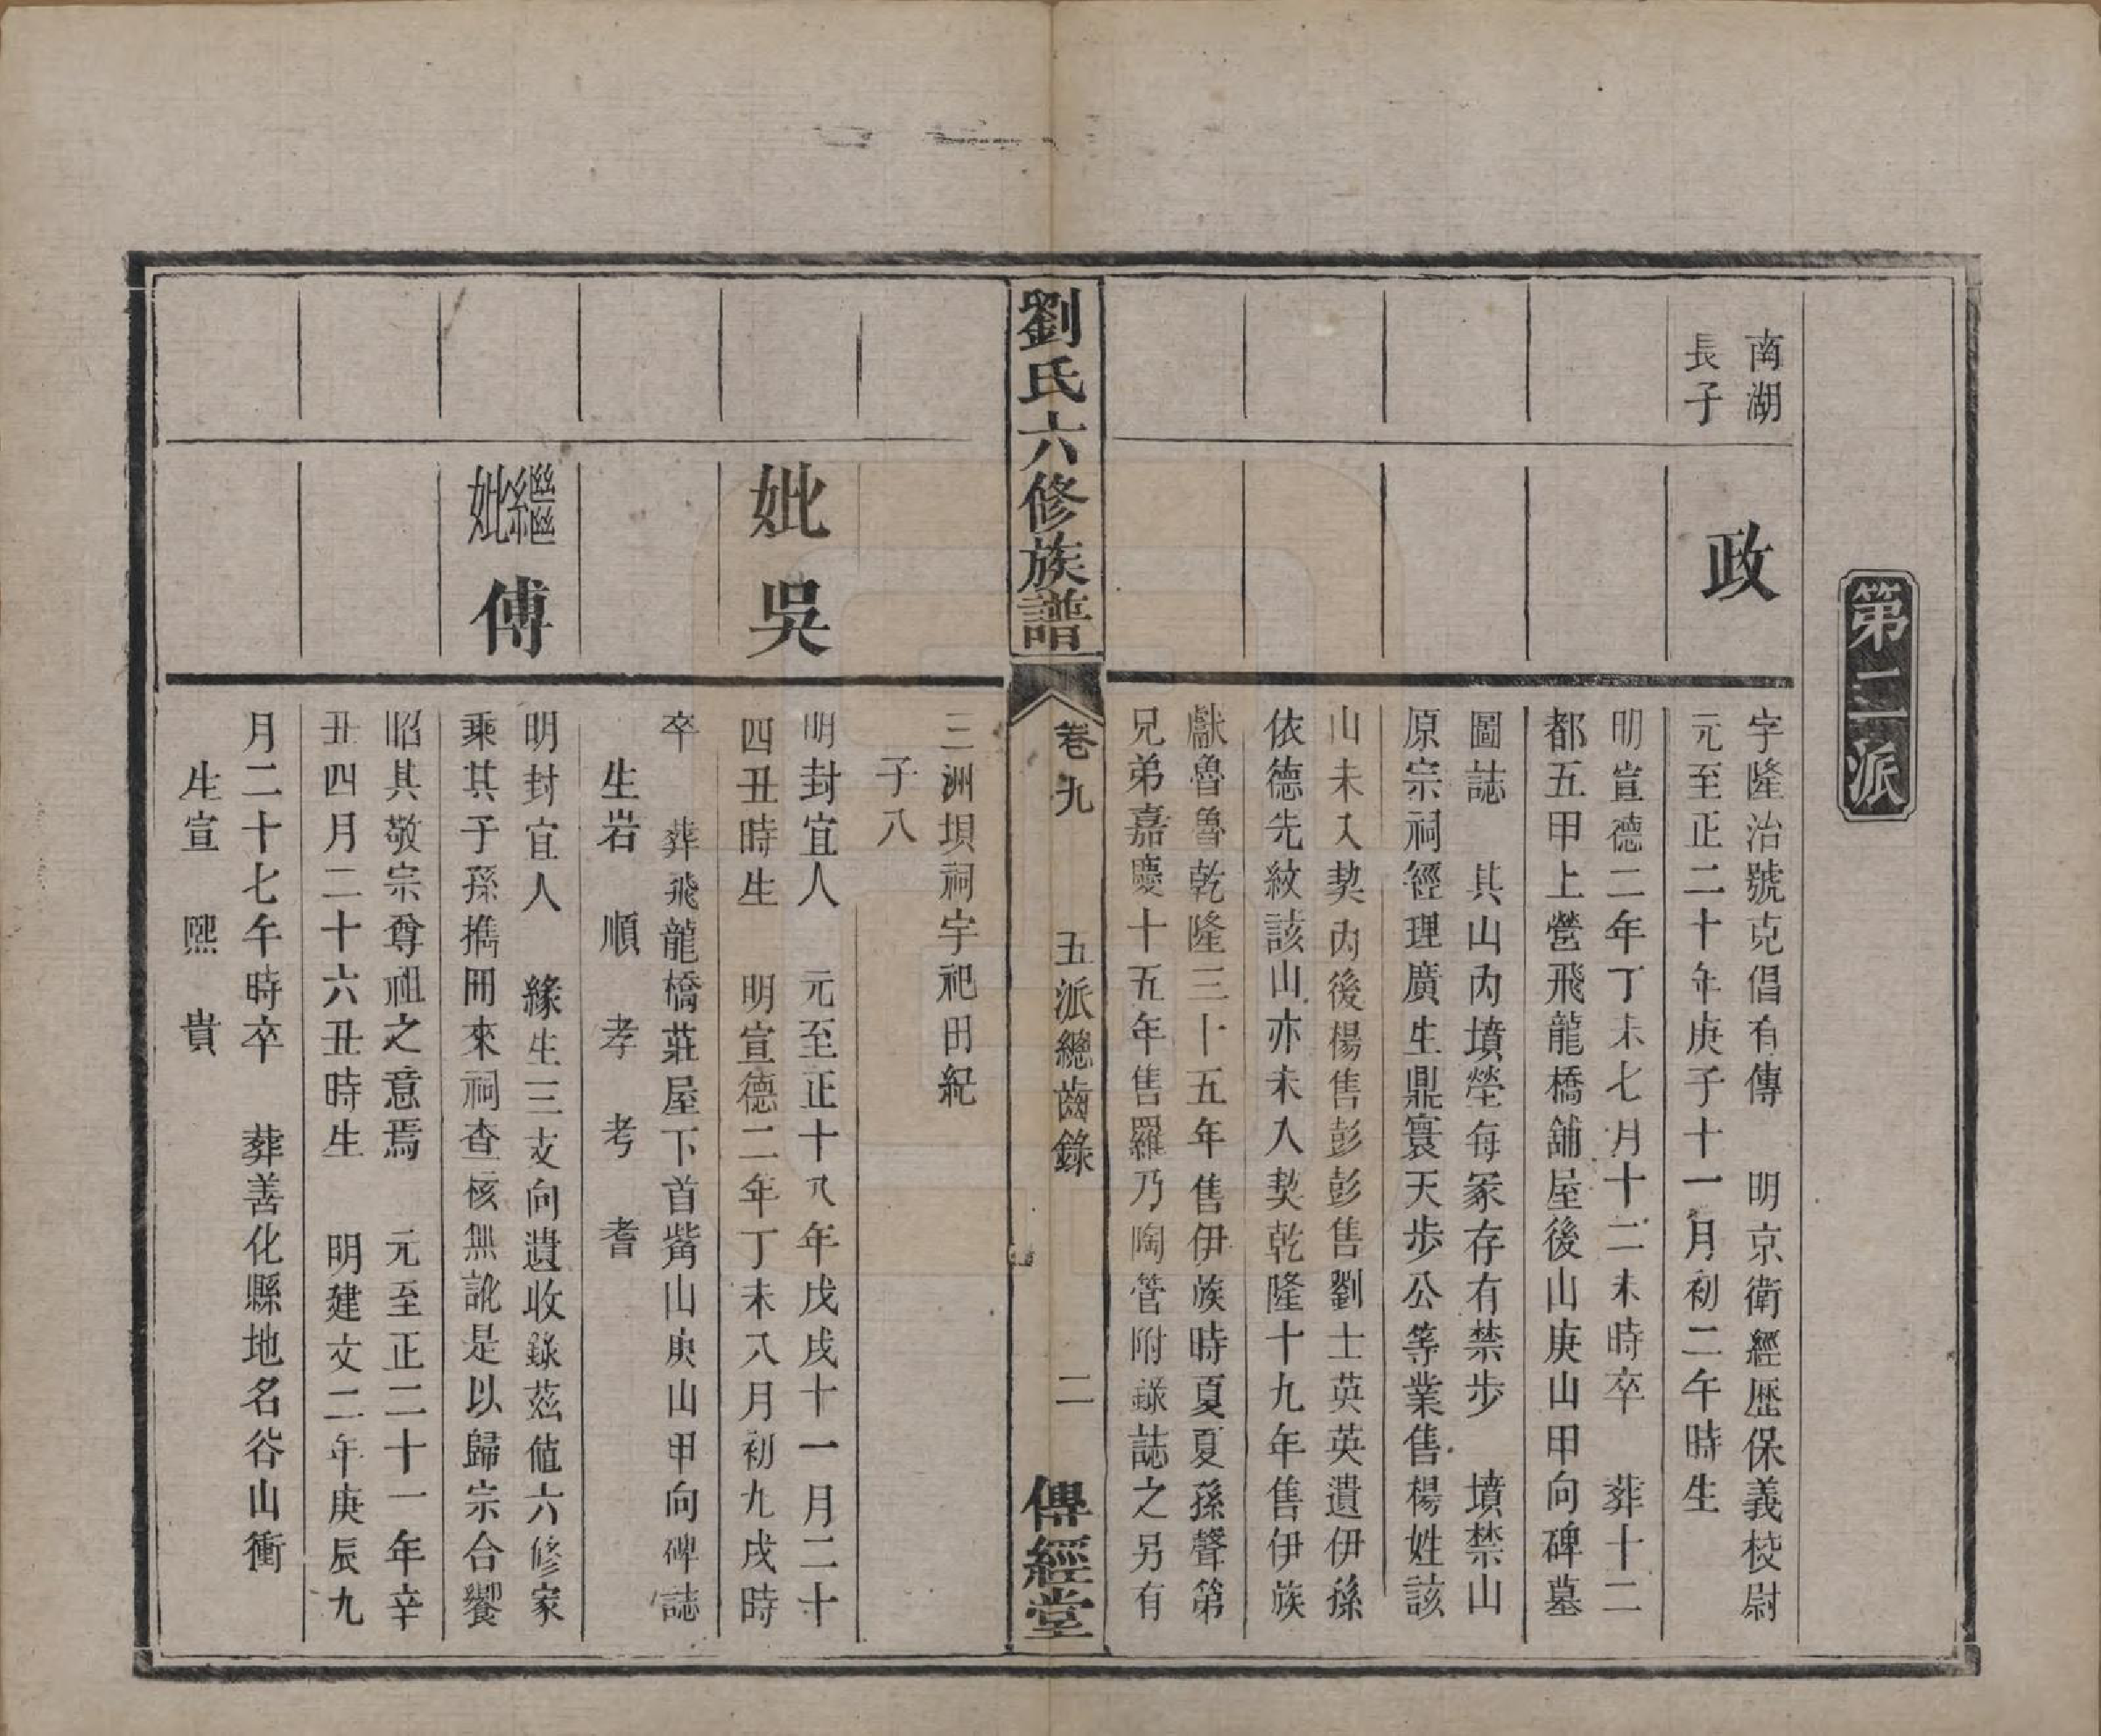 第二派
南湖
長子
政
字隆治號克倡有傳　明京衛經歷保義校尉
元至正二十年庚子十一月初二午時生
明宣德二年丁未七月十二未時卒　葬十二
都五甲上營飛龍橋舖屋後山庚山甲向碑墓
圖誌　其山內墳塋每冢存有禁步　墳禁山
原宗祠經理廣生鼎寰天步公等業售楊姓該
山未入契內後楊售彭彭售劉士英英遺伊孫
依德先紋該山亦未入契乾隆十九年售伊族
獻魯魯乾隆三十五年售伊族時夏夏孫聲第
兄弟嘉慶十五年售羅乃陶管附錄誌之另有
劉氏六修族譜
卷九
五派總齒錄
二
傳經堂
三洲垻祠宇祀田紀
子八
妣吳
明封宜人　元至正十八年戊戌十一月二十
四丑時生　明宣德二年丁未八月初九戌時
卒　葬飛龍橋莊屋下首觜山庚山甲向碑誌
生岩　順　孝　考　耆
繼妣傅
明封宜人　緣生三支向遺收錄茲值六修家
乘其子孫擕冊來祠查核無訛是以歸宗合饗
昭其敬宗尊祖之意焉　元至正二十一年辛
丑四月二十六丑時生　明建文二年庚辰九
月二十七午時卒　葬善化縣地名谷山衝
生宣　熙　貴